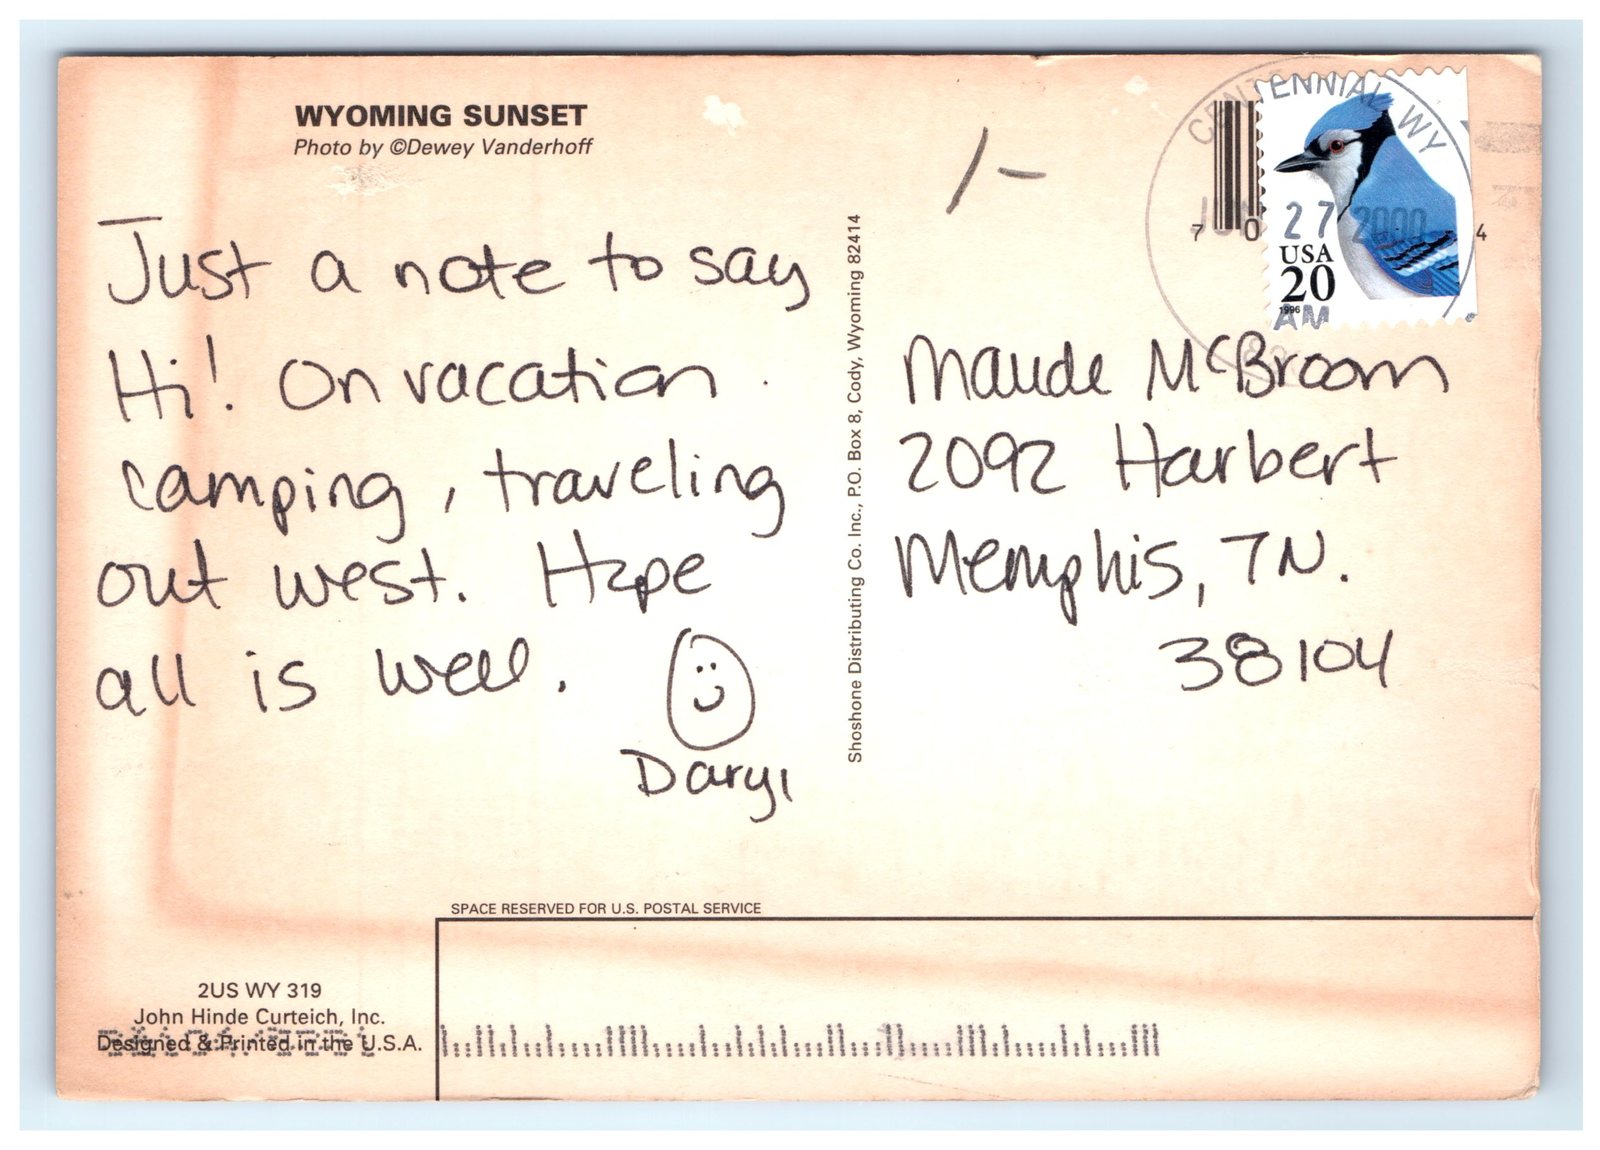 WYOMING SUNSET
Photo by ©Dewey Vanderhoff
Just a note to say
Hi! On vacation
camping, traveling
out west. Hope
all is well.
Daryl
Shoshone Distributing Co. Inc., P.O. Box 8, Cody, Wyoming 82414
1-
CENTENNIAL WY
27 2000
AM
7 0 4
USA
20
1996
Maude McBroom
2092 Harbert
Memphis, TN.
38104
SPACE RESERVED FOR U.S. POSTAL SERVICE
2US WY 319
John Hinde Curteich, Inc.
Designed & Printed in the U.S.A.